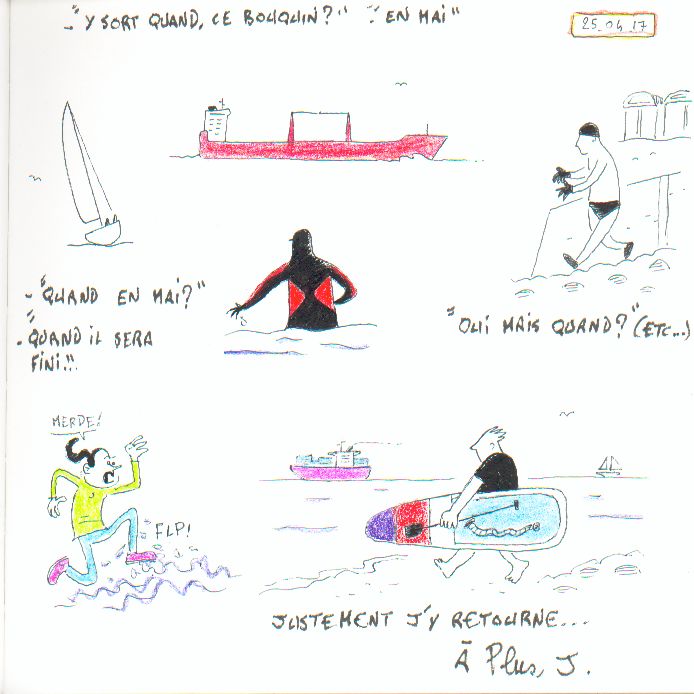 -"Y SORT QUAND, CE BOUQUIN?" "EN MAI"
25_04_17
-"QUAND EN MAI?"
-"QUAND iL SERA
FiNi!!!
"OUi MAiS QUAND?" (ETC...)
MERDE!
FLP!
JUSTEMENT J'Y RETOURNE...
À Plus, J.